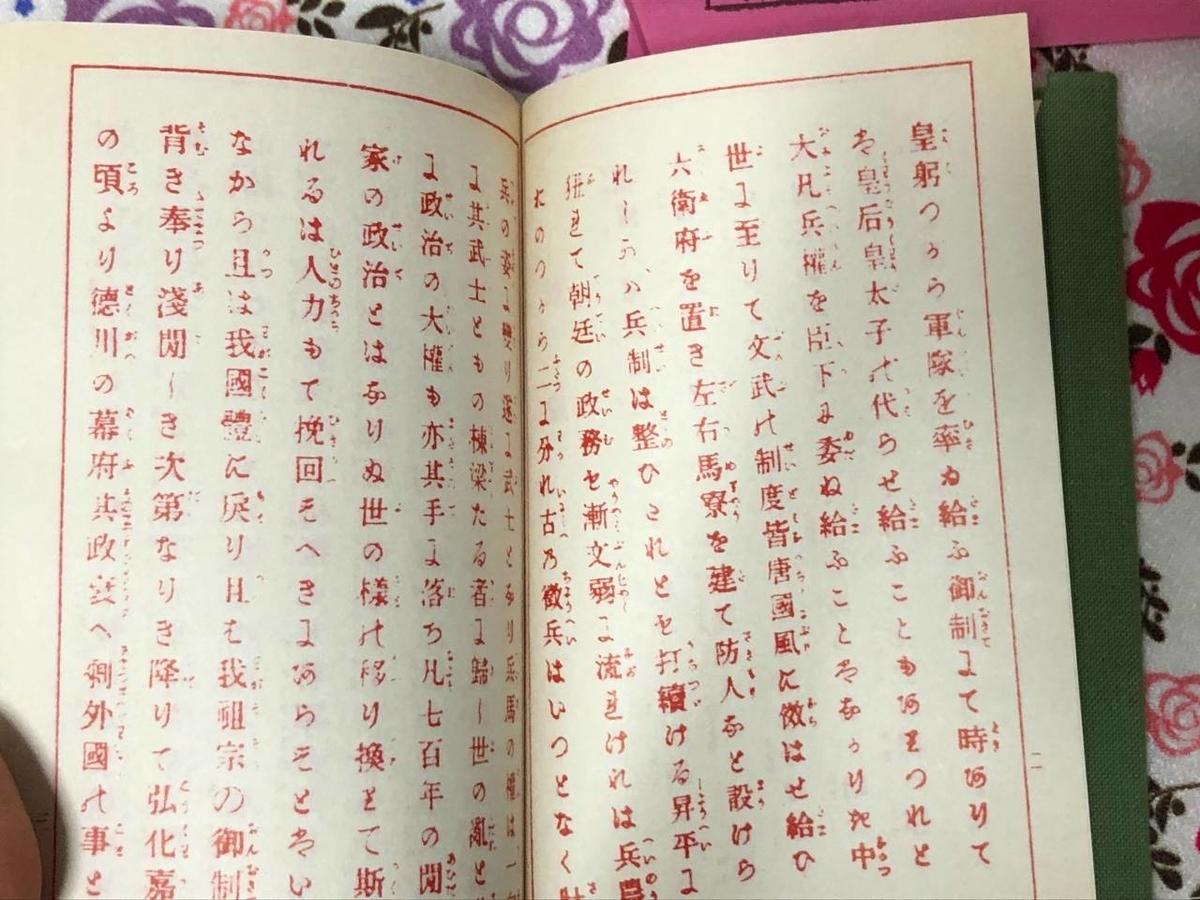 皇躬つから軍隊を率ゐ給ふ御制にて時ありて
は皇后皇太子の代らせ給ふこともありつれと
大凡兵權を臣下に委ね給ふことはなかりき中
世に至りて文武の制度皆唐國風に傚はせ給ひ
六衛府を置き左右馬寮を建て防人なと設けら
れしかは兵制は整ひたれとも打續ける昇平に
狃れて朝廷の政務も漸文弱に流れけれは兵農
おのつから二に分れ古の徴兵はいつとなく
二
兵の姿に變り遂に武士となり兵馬の權は一
に其武士ともの棟梁たる者に歸し世の亂と
に政治の大權も亦其手に落ち凡七百年の間
家の政治とはなりぬ世の様の移り換りて斯
れるは人力もて挽回すへきにあらすとはい
なから且は我國體に戻り且は我祖宗の御制
背き奉り淺間しき次第なりき降りて弘化嘉
の頃より德川の幕府其政衰へ剩外國の事と
三